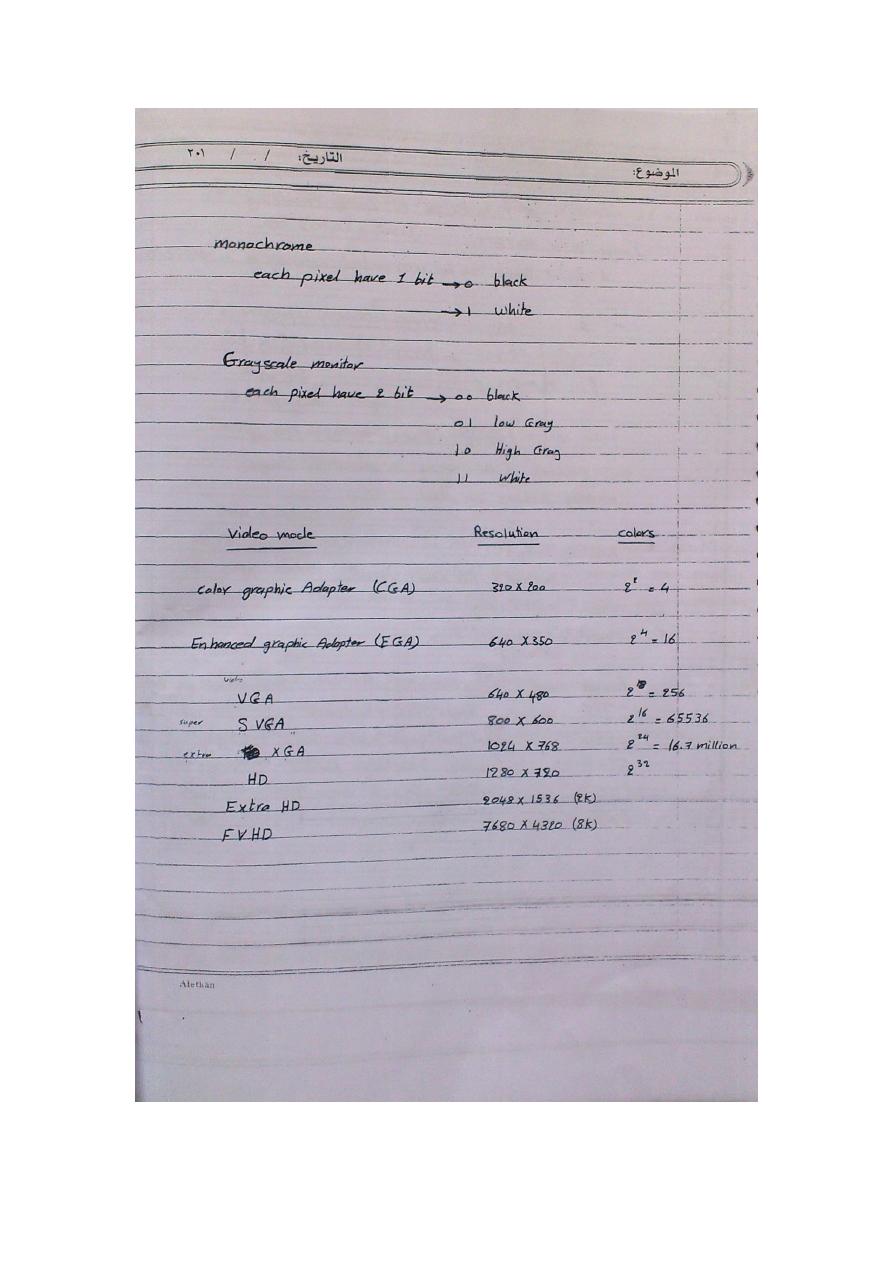 التاريخ: / / ٢٠١
الموضوع:
monochrome
each pixel have 1 bit → 0 black
→ 1 white
Grayscale monitor
each pixel have 2 bit → 00 black
01 low Gray
10 High Gray
11 white
Video mode Resolution colors
color graphic Adapter (CGA) 320 X 200 2² = 4
Enhanced graphic Adapter (EGA) 640 X 350 2⁴ = 16
video
VGA 640 X 480 2⁸ = 256
super SVGA 800 X 600 2¹⁶ = 65536
extra XGA 1024 X 768 2²⁴ = 16.7 million
HD 1280 X 720 2³²
Extra HD 2048 X 1536 (2K)
FVHD 7680 X 4320 (8K)
Alethan